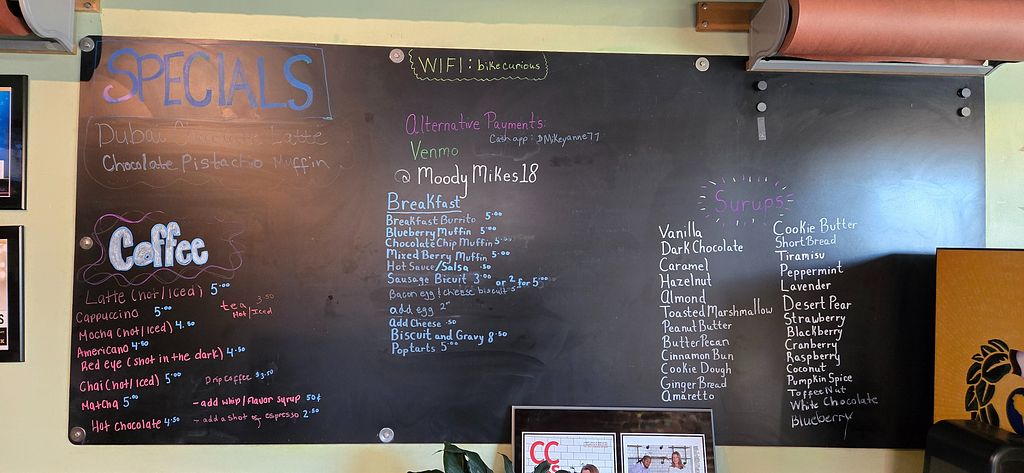 SPECIALS
Dubai Chocolate Latte
Chocolate Pistachio Muffin
Coffee
Latte (Hot/Iced) 5.00
Cappuccino 5.00
tea 3.50
Hot/Iced
Mocha (Hot/Iced) 4.50
Americano 4.50
Red eye (shot in the dark) 4.50
Chai (Hot/Iced) 5.00
Drip Coffee $3.50
Matcha 5.00
- add whip/flavor syrup 50¢
Hot Chocolate 4.50
- add a shot of espresso 2.50
WIFI: bikecurious
Alternative Payments:
Cashapp: $Mikeyanne77
Venmo
@MoodyMikes18
Breakfast
Breakfast Burrito 5.00
Blueberry Muffin 5.00
Chocolate Chip Muffin 5.00
Mixed Berry Muffin 5.00
Hot Sauce/Salsa .50
Sausage Biscuit 3.00 or 2 for 5.00
Bacon egg & cheese biscuit 5
add egg 2
Add Cheese .50
Biscuit and Gravy 8.50
Poptarts 5.00
Syrups
Vanilla
Dark Chocolate
Caramel
Hazelnut
Almond
Toasted Marshmallow
Peanut Butter
Butter Pecan
Cinnamon Bun
Cookie Dough
Ginger Bread
Amaretto
Cookie Butter
Short Bread
Tiramisu
Peppermint
Lavender
Desert Pear
Strawberry
Blackberry
Cranberry
Raspberry
Coconut
Pumpkin Spice
Toffee Nut
White Chocolate
Blueberry
CC